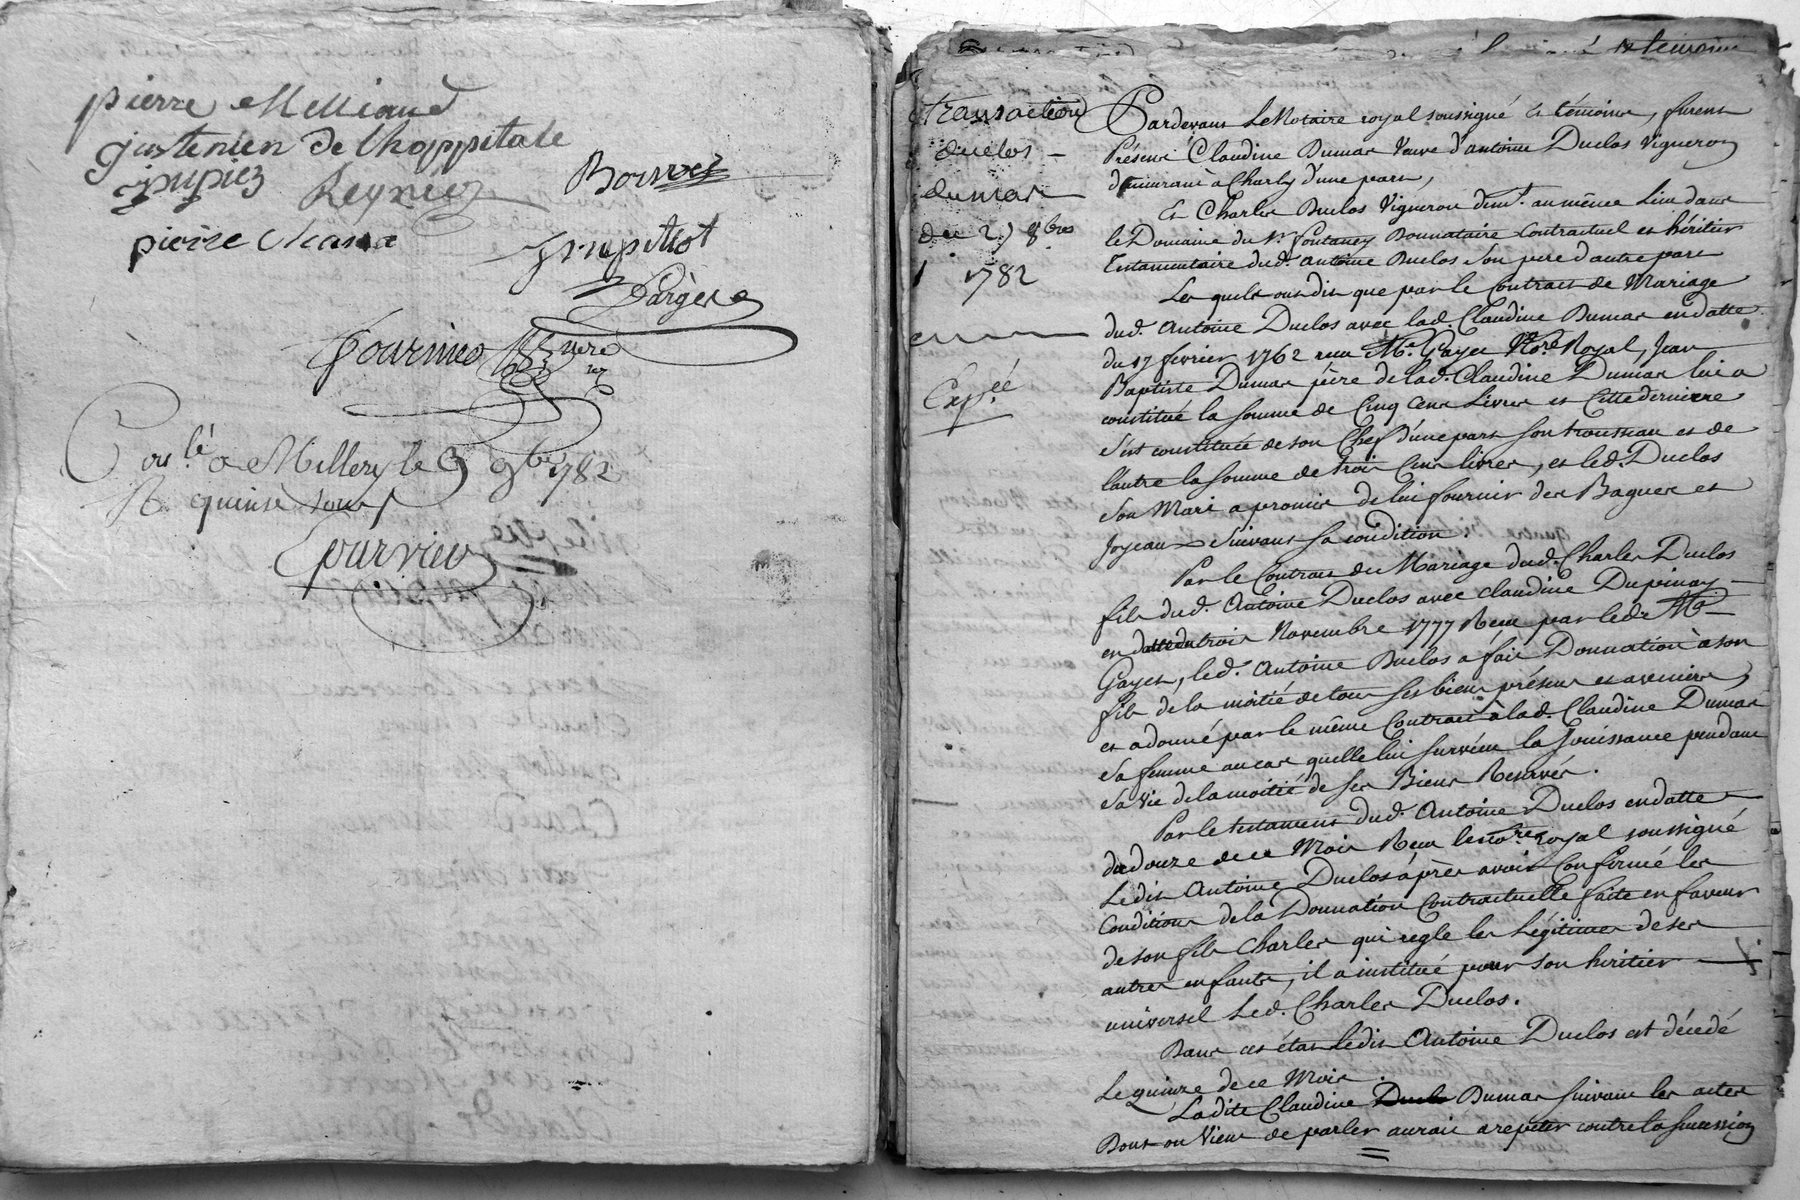 pierre Milliand
justinien de lhoppitale
jpupier Reynier Boiron
pierre
Jmpitiot
Fargere
Fournier
Conlé a Millery le 9 9bre 1782
R quinse sous
Pourvieu
transaction
duclos –
dumas
du 27 8bre
1782
Expée
Pardevant Le Notaire royal soussigné et témoins, furent
Présens Claudine Dumas Veuve d'antoine Duclos Vigneron
demeurant à Charly d'une part,
Et Charles Duclos Vigneron demt. au même Lieu dans
le Domaine du Sr. fontaney Donnataire Contractuel et héritier
testamentaire dud. antoine Duclos son pere d'autre part
Les quels ont dit que par le Contrat de Mariage
dud. Antoine Duclos avec lad. Claudine Dumas en datte
du 17 fevrier 1762 recu Me. Gayet Nore. Royal, Jean
Baptiste Dumas père de lad. Claudine Dumas lui a
constitué la somme de Cinq Cens Livres et Cette derniere
s'est constituée de son Chef d'une part son trousseau et de
l'autre la somme de trois Cens livres, et led. Duclos
son Mari a promis de lui fournir des Bagues et
Joyeaux suivant sa condition.
Par le Contrat de Mariage dud. Charles Duclos
fils dud. Antoine Duclos avec claudine Dupinay
en datte du trois Novembre 1777 Recu par ledit Me.
Gayet, led. Antoine Duclos a fait Donnation à son
fils de la moitié de tous ses biens présens et avenirs,
et a donné par le même Contrat à lad. Claudine Dumas
sa femme au cas qu'elle lui survécu la Jouissance pendant
sa vie de la moitié de ses Biens Reservés.
Par le testament dud. Antoine Duclos en datte
du douze de ce Mois Recu le nore. royal soussigné
Ledit Antoine Duclos après avoir Confirmé les
Conditions de la Donnation Contractuelle faite en faveur
de son fils Charles qui regle les Légitimes de ses
autres enfants, il a institué pour son hiritier
universel Led. Charles Duclos.
Dans cet état Ledit Antoine Duclos est décédé
Le quinze de ce Mois.
Ladite Claudine Duclo Dumas suivant les actes
Dont on Vient de parler auroit a repeter contre la succession